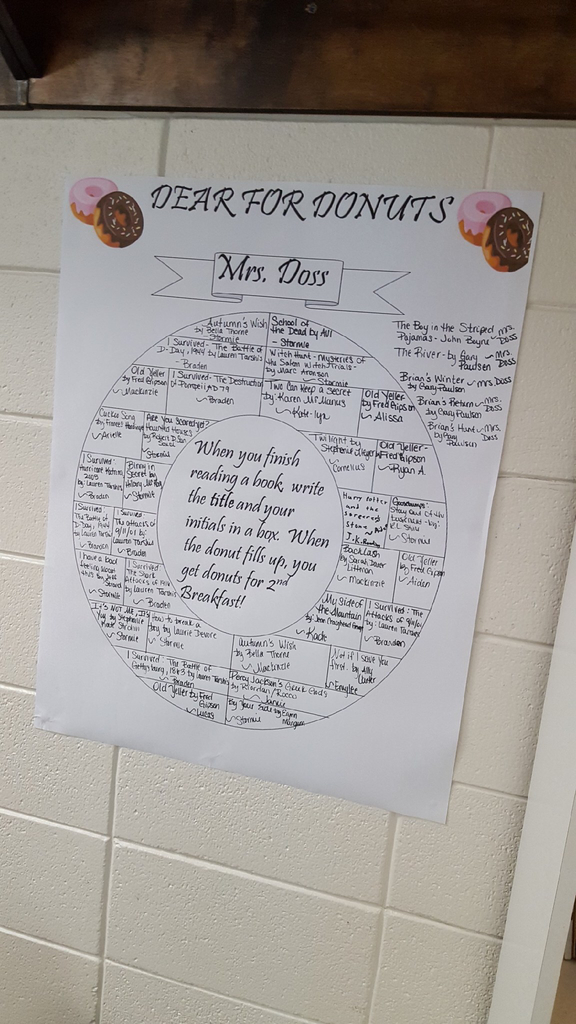 DEAR FOR DONUTS
Mrs. Doss
Autumn's Wish
by Bella Thorne
- Stormie
School of
the Dead by Avi
- Stormie
I Survived - The Battle of
D-Day, 1944 by Lauren Tarshis
- Braden
Witch Hunt - Mysteries of
the Salem Witch Trials -
by Marc Aronson
~ Stormie
Old Yeller
by Fred Gipson
~ Mackenzie
I Survived - The Destruction
of Pompeii, AD 79
~ Braden
Two Can Keep a Secret
by: Karen McManus
~ Kate-lyn
Old Yeller
by Fred Gipson
~ Alissa
The Boy in the Striped
Pajamas - John Boyne ~ Mrs. Doss
The River - by Gary
Paulsen ~ Mrs. Doss
Brian's Winter ~ Mrs Doss
by Gary Paulsen
Brian's Return ~ Mrs. Doss
by Gary Paulsen
Brian's Hunt ~ Mrs. Doss
by Gary Paulsen
Cuckoo Song
by Frances Hardinge
~ Arielle
Are You Scared Yet?
Haunted Houses
by Robert D. San
Souci
Stormie
Twilight by
Stephenie Meyer
~ Cornelius
Old Yeller -
Fred Gipson
~ Ryan A.
When you finish
reading a book, write
the title and your
initials in a box. When
the donut fills up, you
get donuts for 2nd
Breakfast!
I Survived:
Hurricane Katrina,
2005
by Lauren Tarshis
~ Braden
in
Secret by
~ Stormie
Harry Potter
and the
sorcerers
stone
J.K. Rowling
Goosebumps:
Stay Out of the
Basement - by:
R.L. Stine
~ Stormie
I Survived:
The Battle of
D-Day, 1944
by Lauren Tarshis
~ Brandon
I Survived:
The Attacks of
9/11/01 by
Lauren Tarshis
~ Braden
Backlash
by Sarah Darer
Littman
~ Mackenzie
Old Yeller
by Fred Gipson
~ Aiden
I have a bad
feeling about
this by Jeff
Strand
~ Stormie
I Survived
The Shark
Attacks of 1916
by Lauren Tarshis
~ Braden
My Side of
the Mountain
by Jean Craighead George
~ Kade
I Survived: The
Attacks of 9/11/01
by: Lauren Tarshis
~ Brandon
It's Not Me, It's
You by Stephanie
Kate Strohm
~ Stormie
How to break a
boy by Laurie Devore
~ Stormie
Autumn's Wish
by Bella Thorne
~ Mackenzie
Not if I Save You
first. by Ally
Carter
~ Emylee
I Survived: The Battle of
Gettysburg, 1863 by Lauren Tarshis
~ Braden
Percy Jackson's Greek Gods
by Riordan/Rocco
Old Yeller by Fred
Gipson
~ Lucas
By Your Side by Kasie
~ Stormie